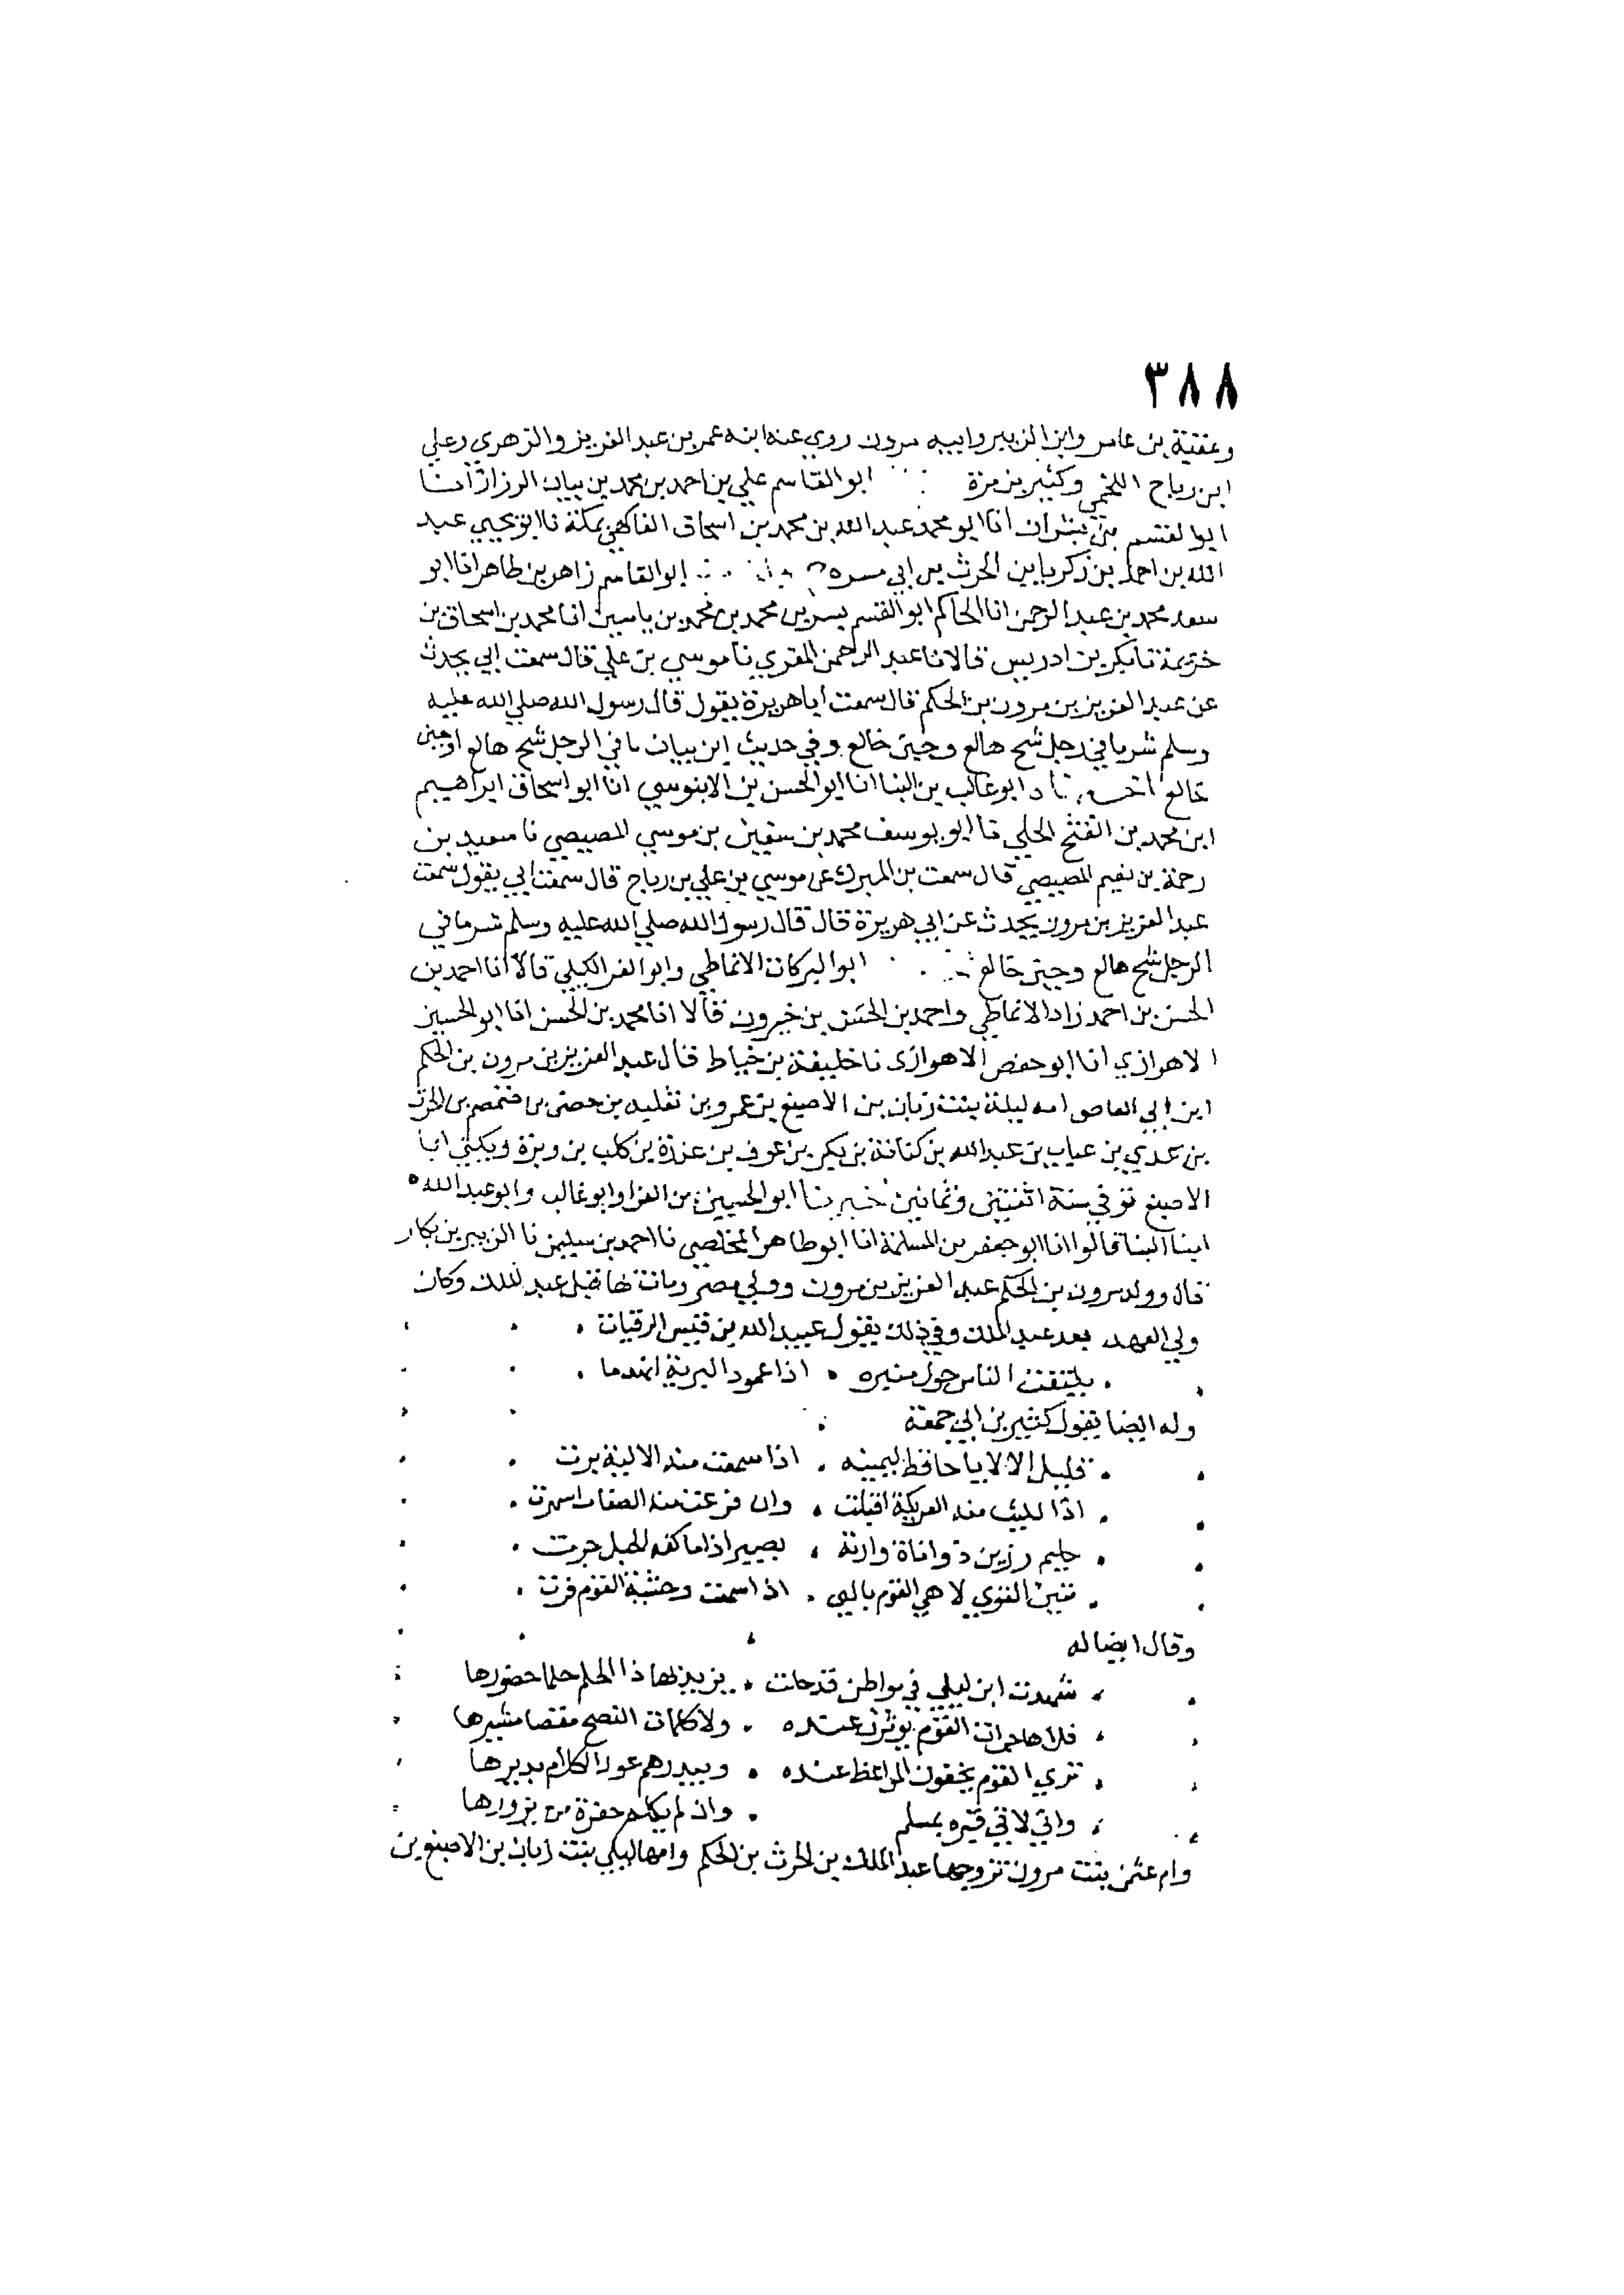 ٣٨٨
وعقبة بن عامر وابن الزبير وابيه مرون روي عنه ابنه عمر بن عبد العزيز والزهري وعلي
ابن رباح اللخمي وكثير بن مرة ابو القاسم علي بن احمد بن محمد بن بيان الرزاز انا
ابو القسم بن بشران انا ابو محمد عبد الله بن محمد بن اسحاق الفاكهي بمكة نا ابو يحيي عبد
الله بن احمد بن زكريا بن الحرث بن ابي مسره ابو القاسم زاهر بن طاهر انا ابو
سعد محمد بن عبد الرحمن انا الحاكم ابو القسم بشر بن محمد بن محمد بن ياسين انا محمد بن اسحاق بن
خزيمة نا بكر بن ادريس قالا نا عبد الرحمن المقري نا موسي بن علي قال سمعت ابي يحدث
عن عبد العزيز بن مرون بن الحكم قال سمعت ابا هريرة يقول قال رسول الله صلي الله عليه
وسلم شر ما في رجل شح هالع وجبن خالع وفي حديث ابن بيان ما في الرجل شح هالع او جبن
خالع ابو غالب بن البنا انا ابو الحسن بن الابنوسي انا ابو اسحاق ابراهيم
ابن محمد بن الفتح الجلي نا ابو يوسف محمد بن سفين بن موسي المصيصي نا سعيد بن
رحمة بن نعيم المصيصي قال سمعت بن المبرك عن موسي بن علي بن رباح قال سمعت ابي يقول سمعت
عبد العزيز بن مرون يحدث عن ابي هريرة قال قال رسول الله صلي الله عليه وسلم شر ما في
الرجل شح هالع وجبن خالع ابو البركات الانماطي وابو العز الكيلي قالا انا احمد بن
الحسن بن احمد زاد الانماطي واحمد بن الحسن بن خيرون قالا انا محمد بن الحسن انا ابو الحسين
الاهوازي انا ابو حفص الاهوازي نا خليفة بن خياط قال عبد العزيز بن مرون بن الحكم
ابن ابي العاص امه ليلة بنت زبان بن الاصبغ بن عمرو بن ثعلبه بن حصن بن ضمضم بن الحرث
بن عدي بن عياب بن عبد الله بن كنانة بن بكر بن عوف بن عذرة بن كلب بن وبرة ويكني ابا
الاصبغ توفي سنة اثنتين وثمانين خبرنا ابو الحسين بن الفرا وابو غالب وابو عبد الله
ابنا البنا قالوا انا ابو جعفر بن المسلمة انا ابو طاهر المخلصي نا احمد بن سليمن نا الزبير بن بكار
قال وولد مرون بن الحكم عبد العزيز بن مرون وولي مصر ومات بها قبل عبد الملك وكان
ولي العهد بعد عبد الملك وفي ذلك يقول عبيد الله بن قيس الرقيات
يلتفت الناس حول منبره اذا عمود البرية انهدما
وله ايضا يقول كثير بن ابي جمعة
قليل الالايا حافظ ليمينه اذا سمعت منه الالية برت
اذا منه العريكة اقبلت وان منه الصفات اسمرت
حليم رزين ذو اناة وارثة بصير اذا ما كفه للحبل جرت
القوي لاهي القوم بالبي اذا وخشية القوم فرت
وقال ايضا له
شهدت ابن ليلي في مواطن قد خلت يزيد بها ذا الحلم حلما حضورها
فلا القوم يوثرن عنده ولا كلمات النصح مقصا مشيرها
تري القوم يخفون المواعظ عنده ويبدرهم عور الكلام بديرها
واني لاتي قبره بمسلم وان لم يكلم حفرة من يزورها
وام عثمن بنت مرون تزوجها عبد الملك بن الحرث بن الحكم وامها ليلي بنت زبان بن الاصبغ بن